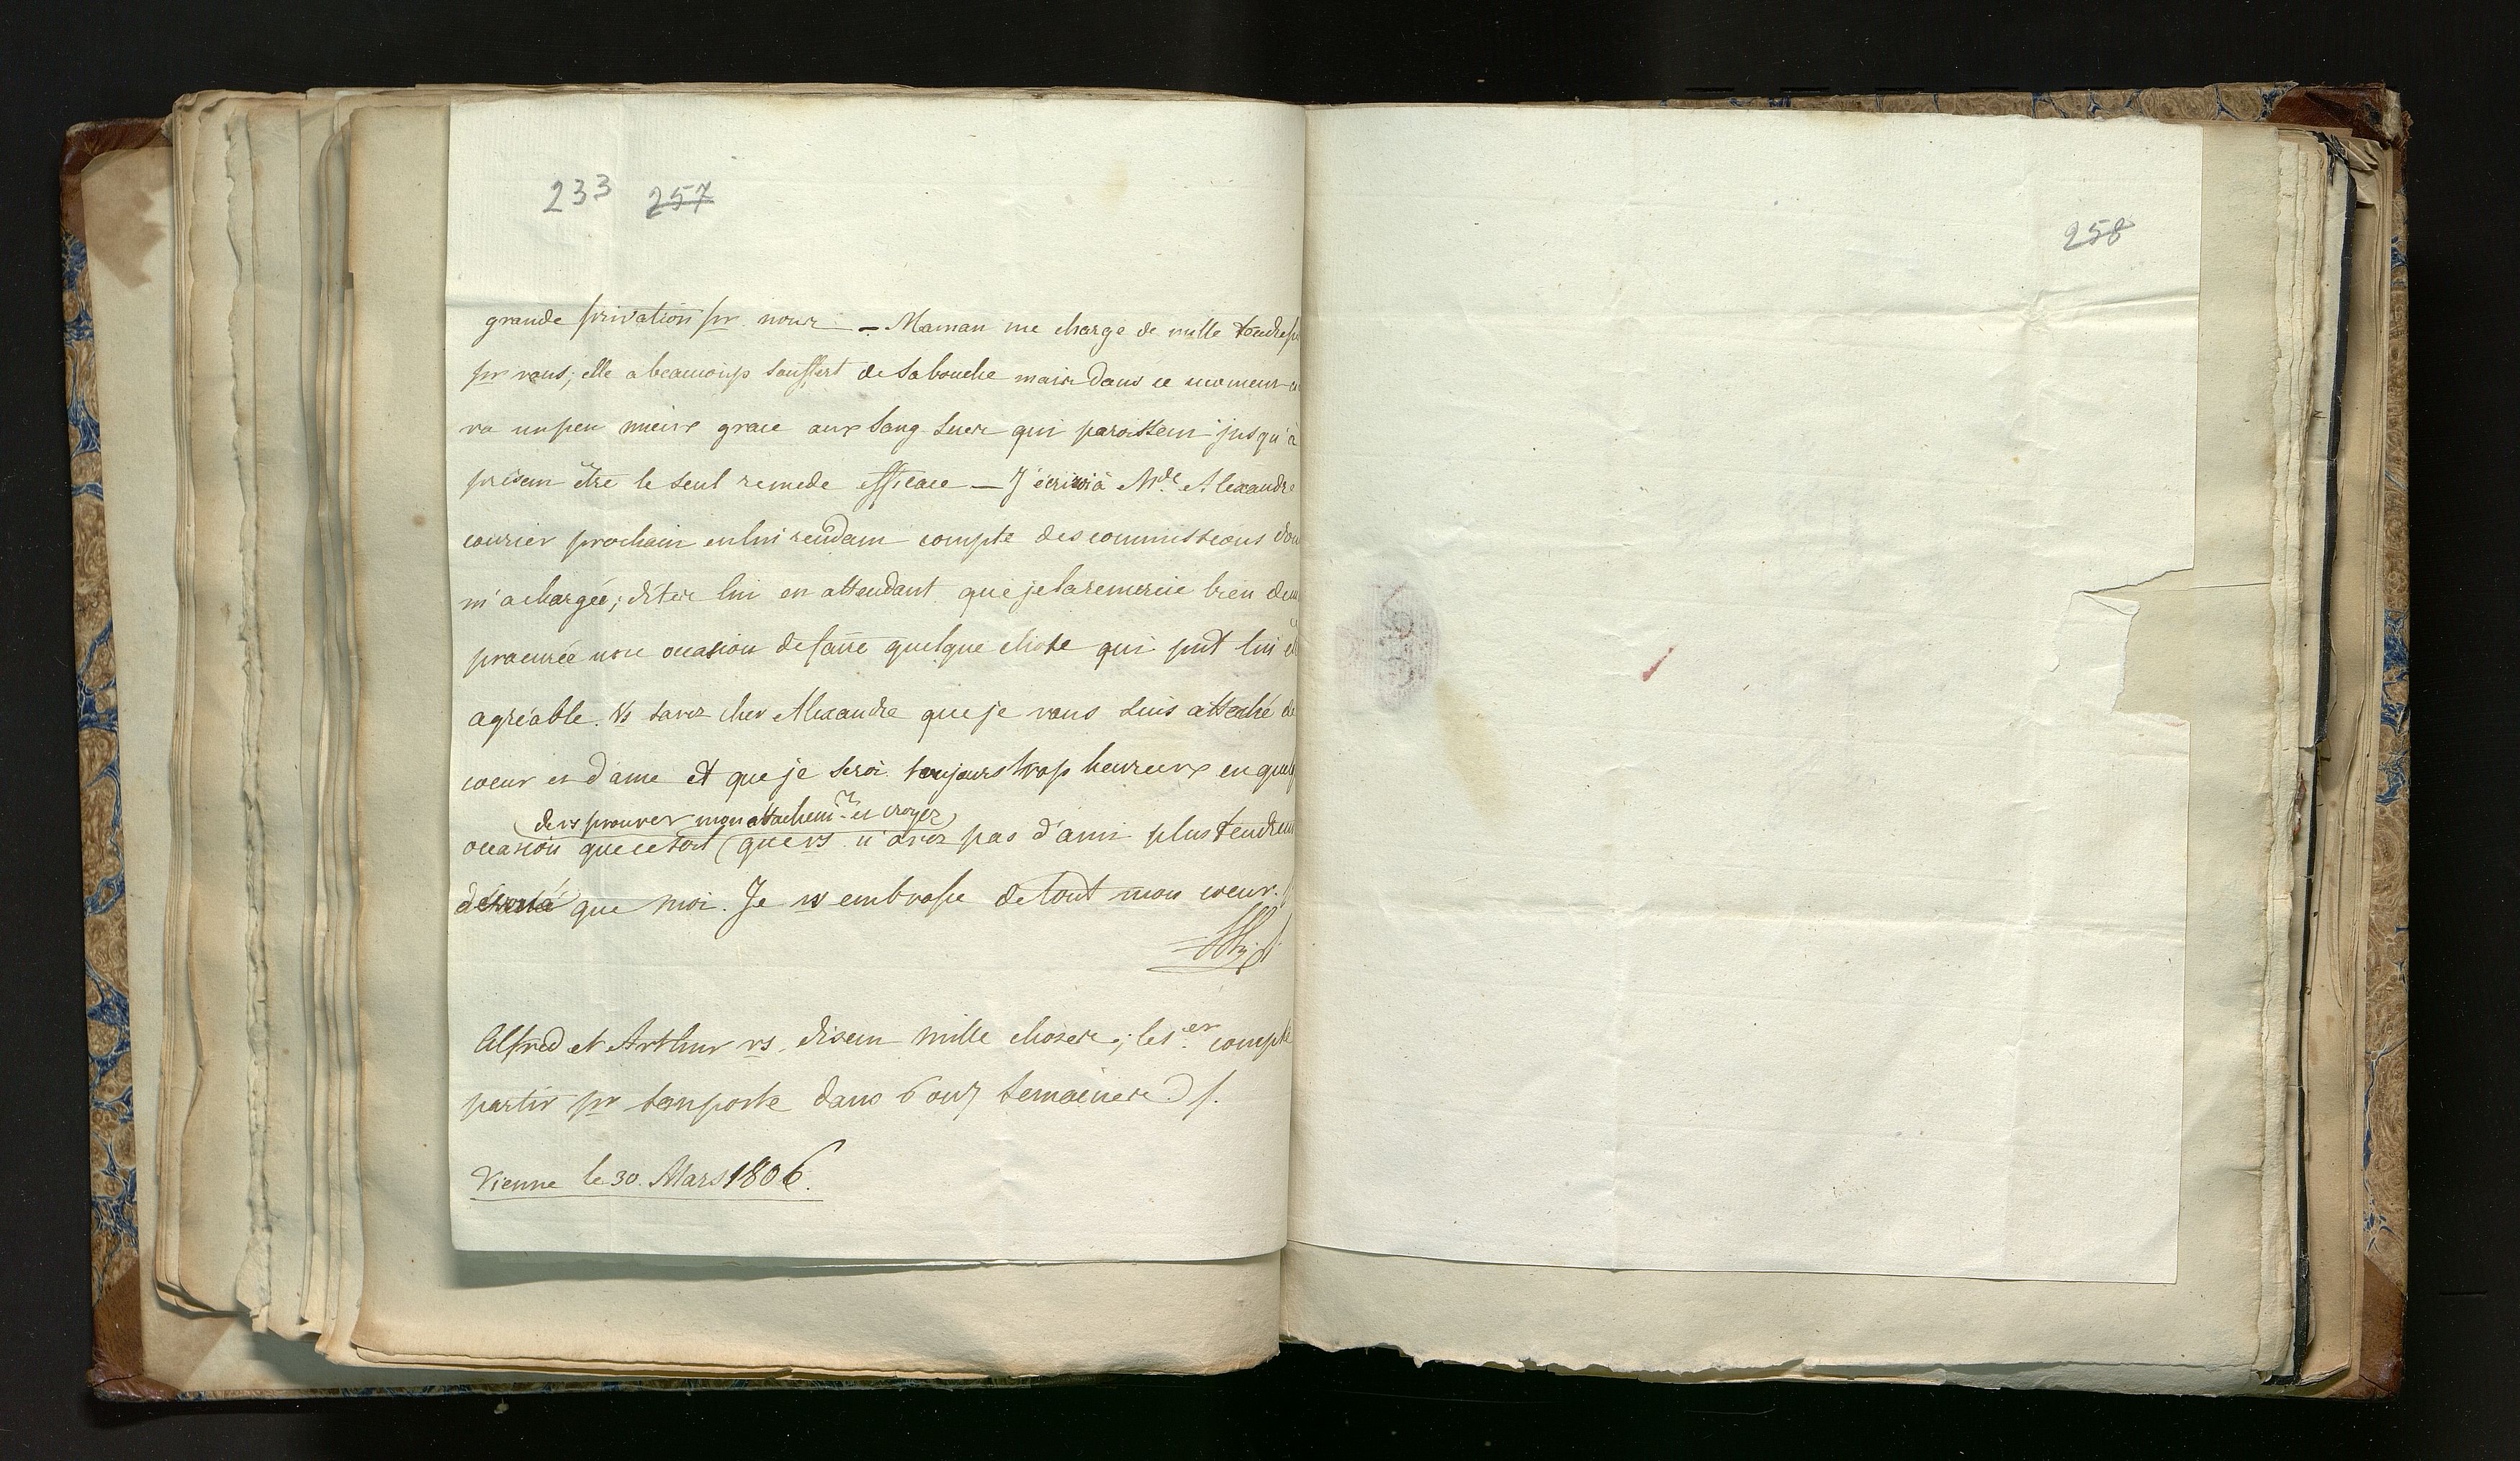 233 257
258
grande privation pr nous - Maman me charge de mille
pr vous; elle a beaucoup souffert de sa bouche mais dans ce moment
va un peu mieux grace aux sang sues qui paroissent jusqu'à
présent être le seul remede efficace — J'écrirai à Mde Alexandre
courier prochain en lui rendant compte des commissions
m'a chargée; dites lui en attendant que je la remercie bien
procurée une occasion de faire quelque chose qui put lui
agréable. Vs savez cher Alexandre que je vous suis attaché de
coeur et d'ame et que je serai toujours trop heureux en
de vs prouver mon attachemt et croyez
occasion que ce soit que vs n'avez pas d'ami plus
dévoué que moi. Je vs embrasse de tout mon coeur.
Alfred et Arthur vs disent mille choses; le 1.er compte
partir pr dans 6 ou 7 semaines
Vienne le 30. Mars 1806.